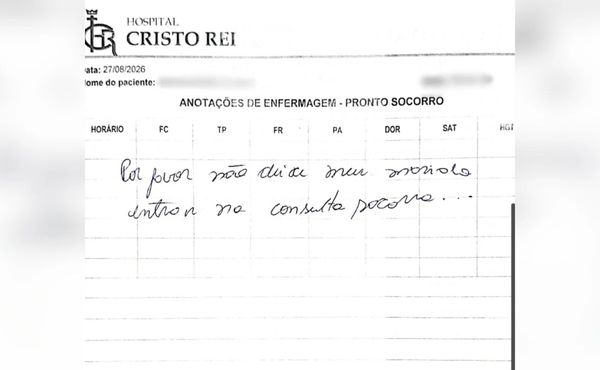 HOSPITAL
CRISTO REI
Data: 27/08/2026
Nome do paciente:
ANOTAÇÕES DE ENFERMAGEM - PRONTO SOCORRO
HORÁRIO FC TP FR PA DOR SAT HGT
Por favor não deixe meu marido
entrar na consulta socorro...